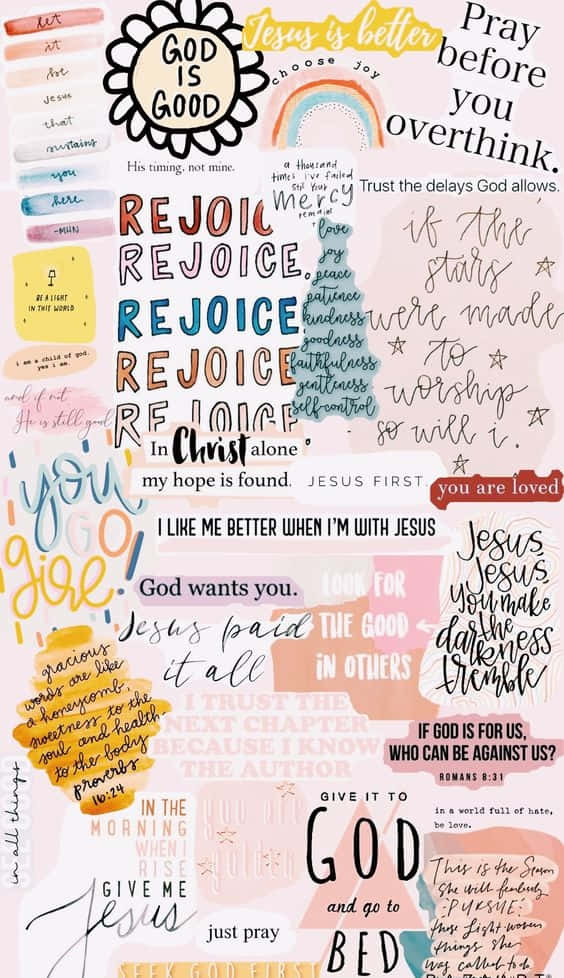 let
it
be
Jesus
that
sustains
you
here
-MHN
GOD
IS
GOOD
Jesus is better
choose joy
Pray
before
you
overthink.
His timing, not mine.
a thousand
times i've failed
still your
mercy
remains
Trust the delays God allows.
REJOIC
REJOICE.
REJOICE
REJOICE
REJOICE
love
joy
peace
patience
kindness
goodness
faithfulness
gentleness
self-control
if the
stars
were made
to
worship
so will i.
BE A LIGHT
IN THIS WORLD
i am a child of god.
yes i am.
and if not,
He is still good
In Christ alone
my hope is found.
JESUS FIRST.
you are loved
you
GO
girl.
I LIKE ME BETTER WHEN I'M WITH JESUS
Jesus,
Jesus,
you make
the
darkness
tremble
God wants you.
LOOK FOR
THE GOOD
IN OTHERS
Jesus paid
it all
gracious
words are like
a honeycomb,
sweetness to the
soul and health
to the body
proverbs
16:24
I TRUST THE
NEXT CHAPTER
BECAUSE I KNOW
THE AUTHOR
IF GOD IS FOR US,
WHO CAN BE AGAINST US?
ROMANS 8:31
in all things
IN THE
MORNING
WHEN I
RISE
GIVE ME
Jesus
you are
golden
just pray
GIVE IT TO
GOD
and go to
BED
in a world full of hate,
be love.
This is the Season
She will fearlessly
·PURSUE·
those Light woven
things she
was called to do.
SEEK GOD FIRST